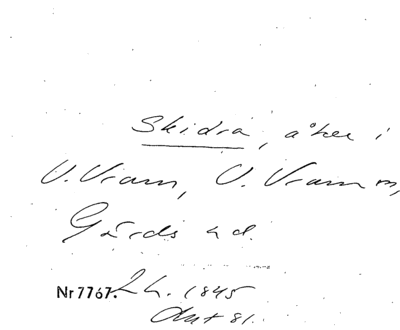 Skidra, åker i
V. Vram, V. Vram sn,
Gärds hd.
Nr 7767. L h. 1845
akt 81.